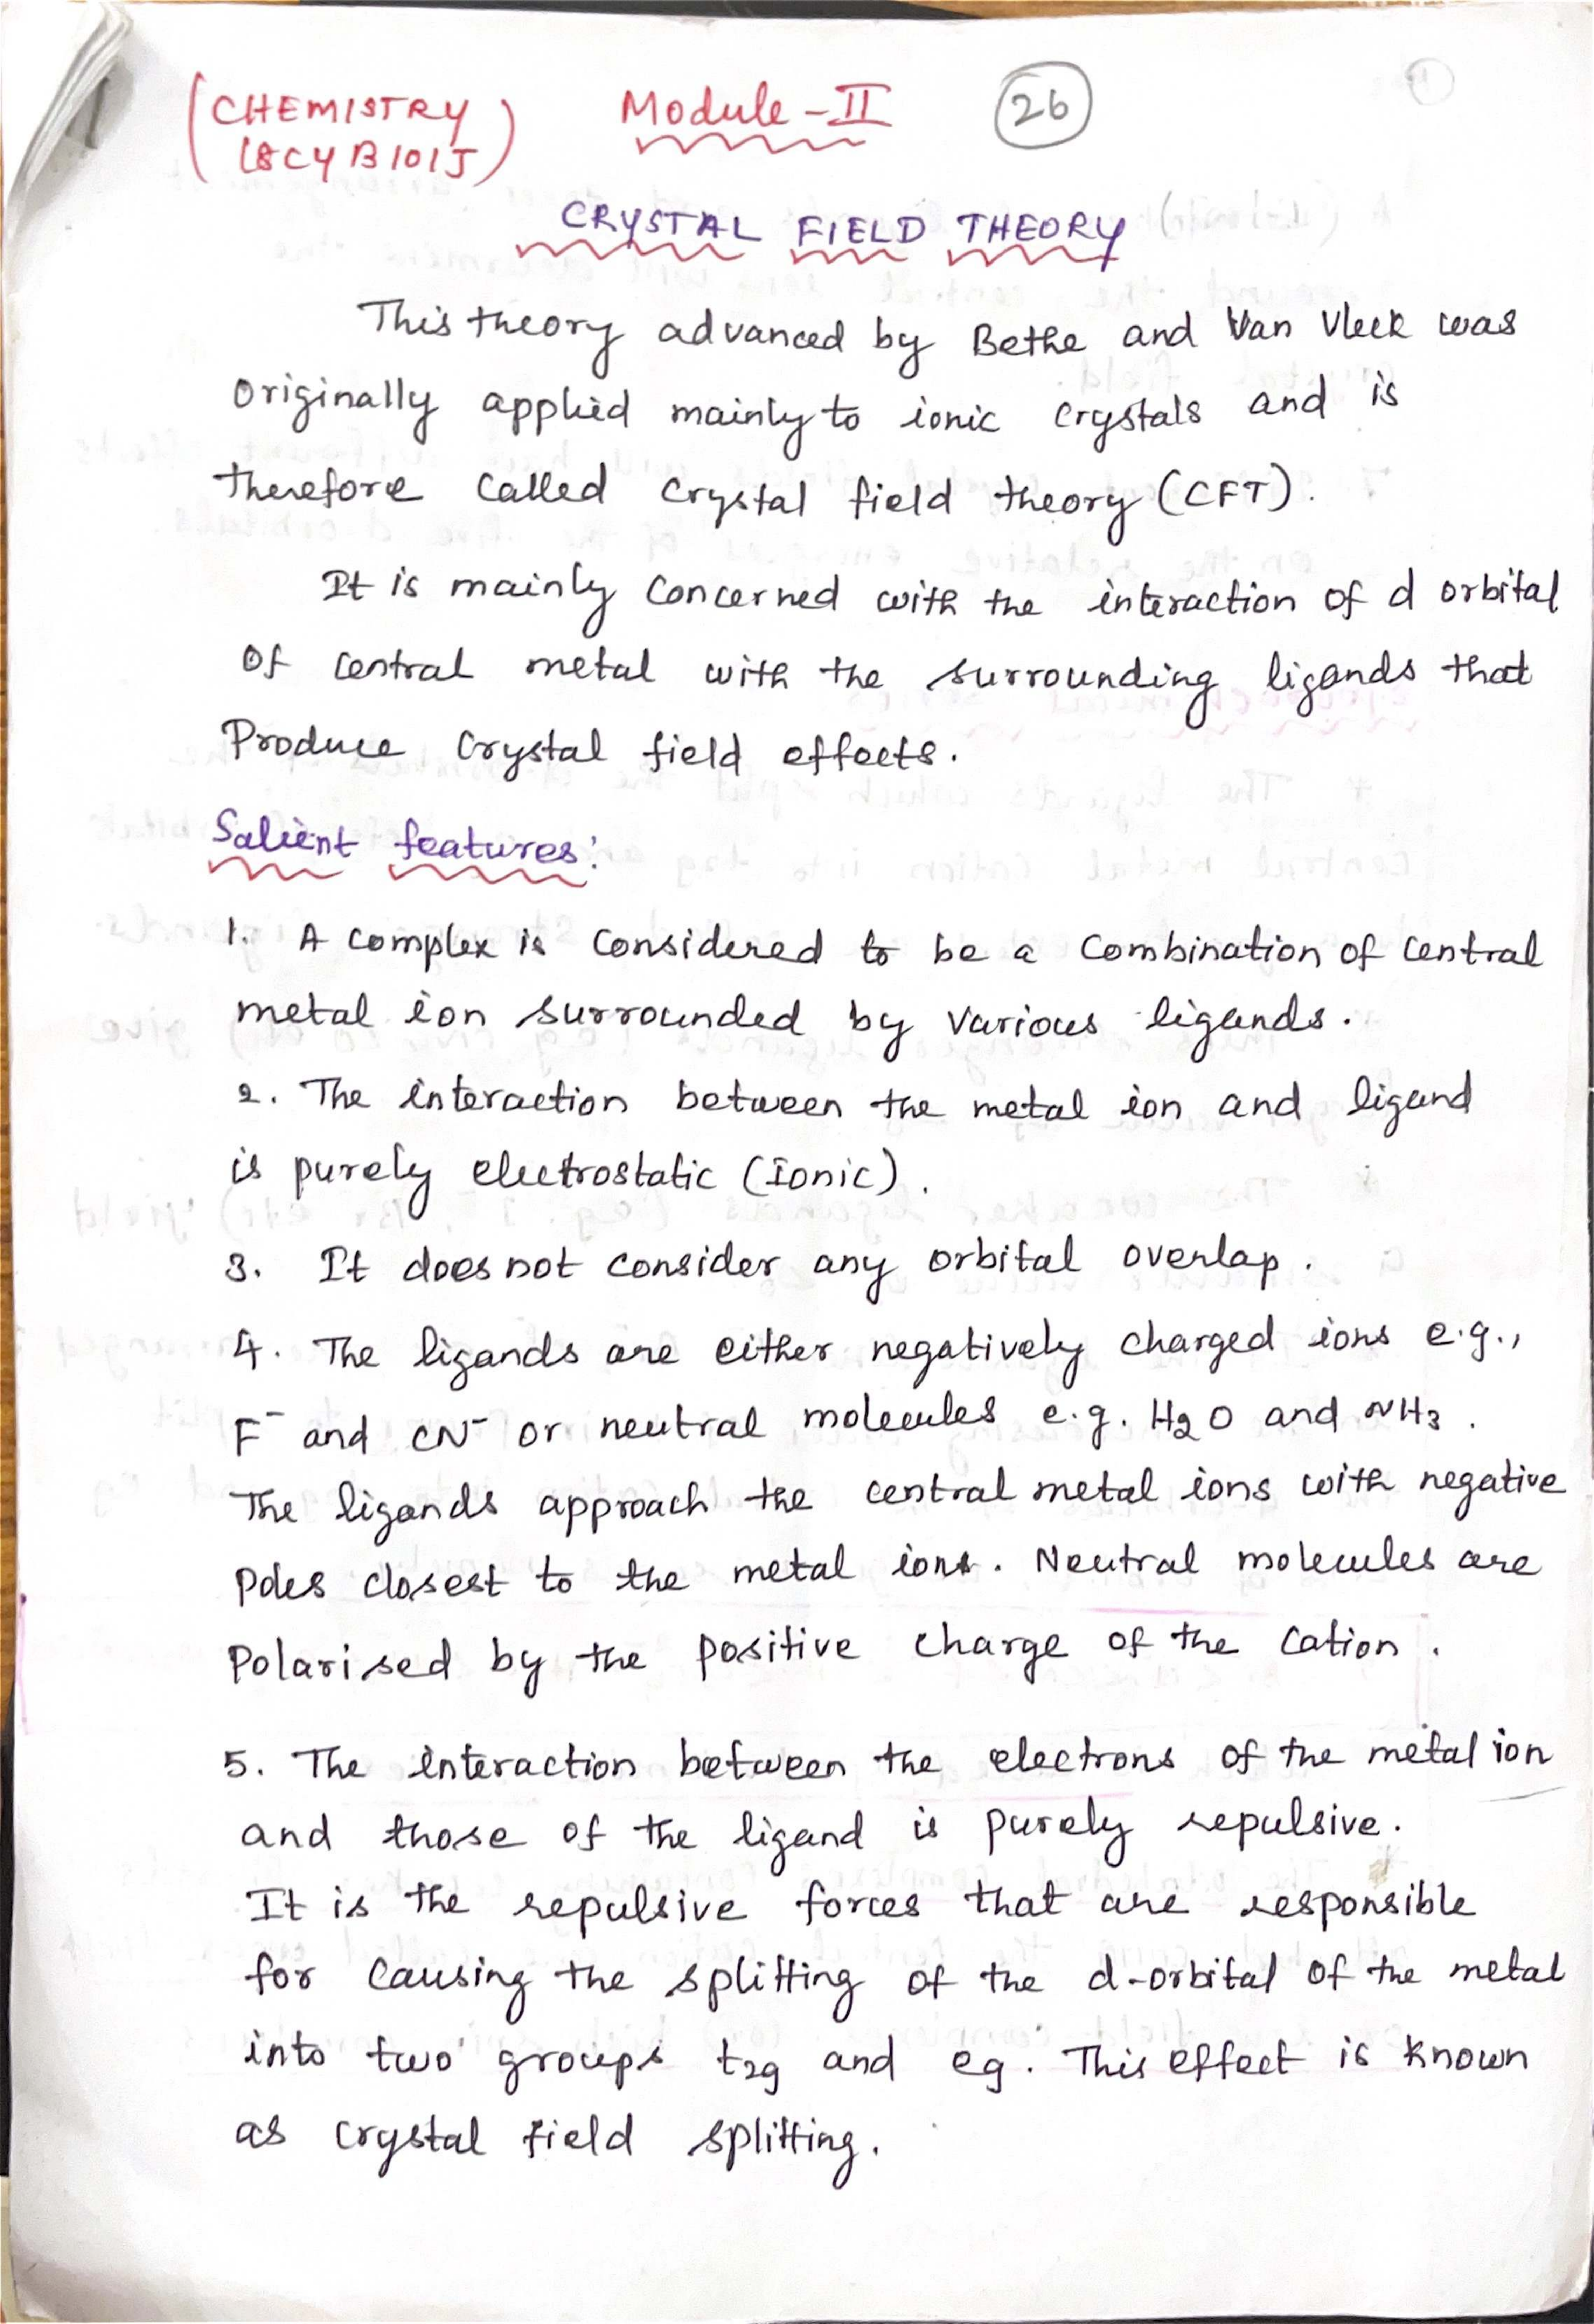 (CHEMISTRY
18CYB101J)
Module-II
26
CRYSTAL FIELD THEORY
This theory advanced by Bethe and Van Vleck was
Originally applied mainly to ionic crystals and is
therefore called crystal field theory (CFT).
It is mainly concerned with the interaction of d orbital
of central metal with the surrounding ligands that
Produce crystal field effects.
Salient features:
1. A complex is considered to be a combination of central
metal ion surrounded by various ligands.
2. The interaction between the metal ion and ligand
is purely electrostatic (Ionic).
3. It does not consider any orbital overlap.
4. The ligands are either negatively charged ions e.g.,
F⁻ and CN⁻ or neutral molecules e.g. H₂O and NH₃.
The ligands approach the central metal ions with negative
poles closest to the metal ions. Neutral molecules are
Polarised by the positive charge of the cation.
5. The interaction between the electrons of the metal ion
and those of the ligand is purely repulsive.
It is the repulsive forces that are responsible
for causing the splitting of the d-orbital of the metal
into two groups t₂g and eg. This effect is known
as crystal field splitting.